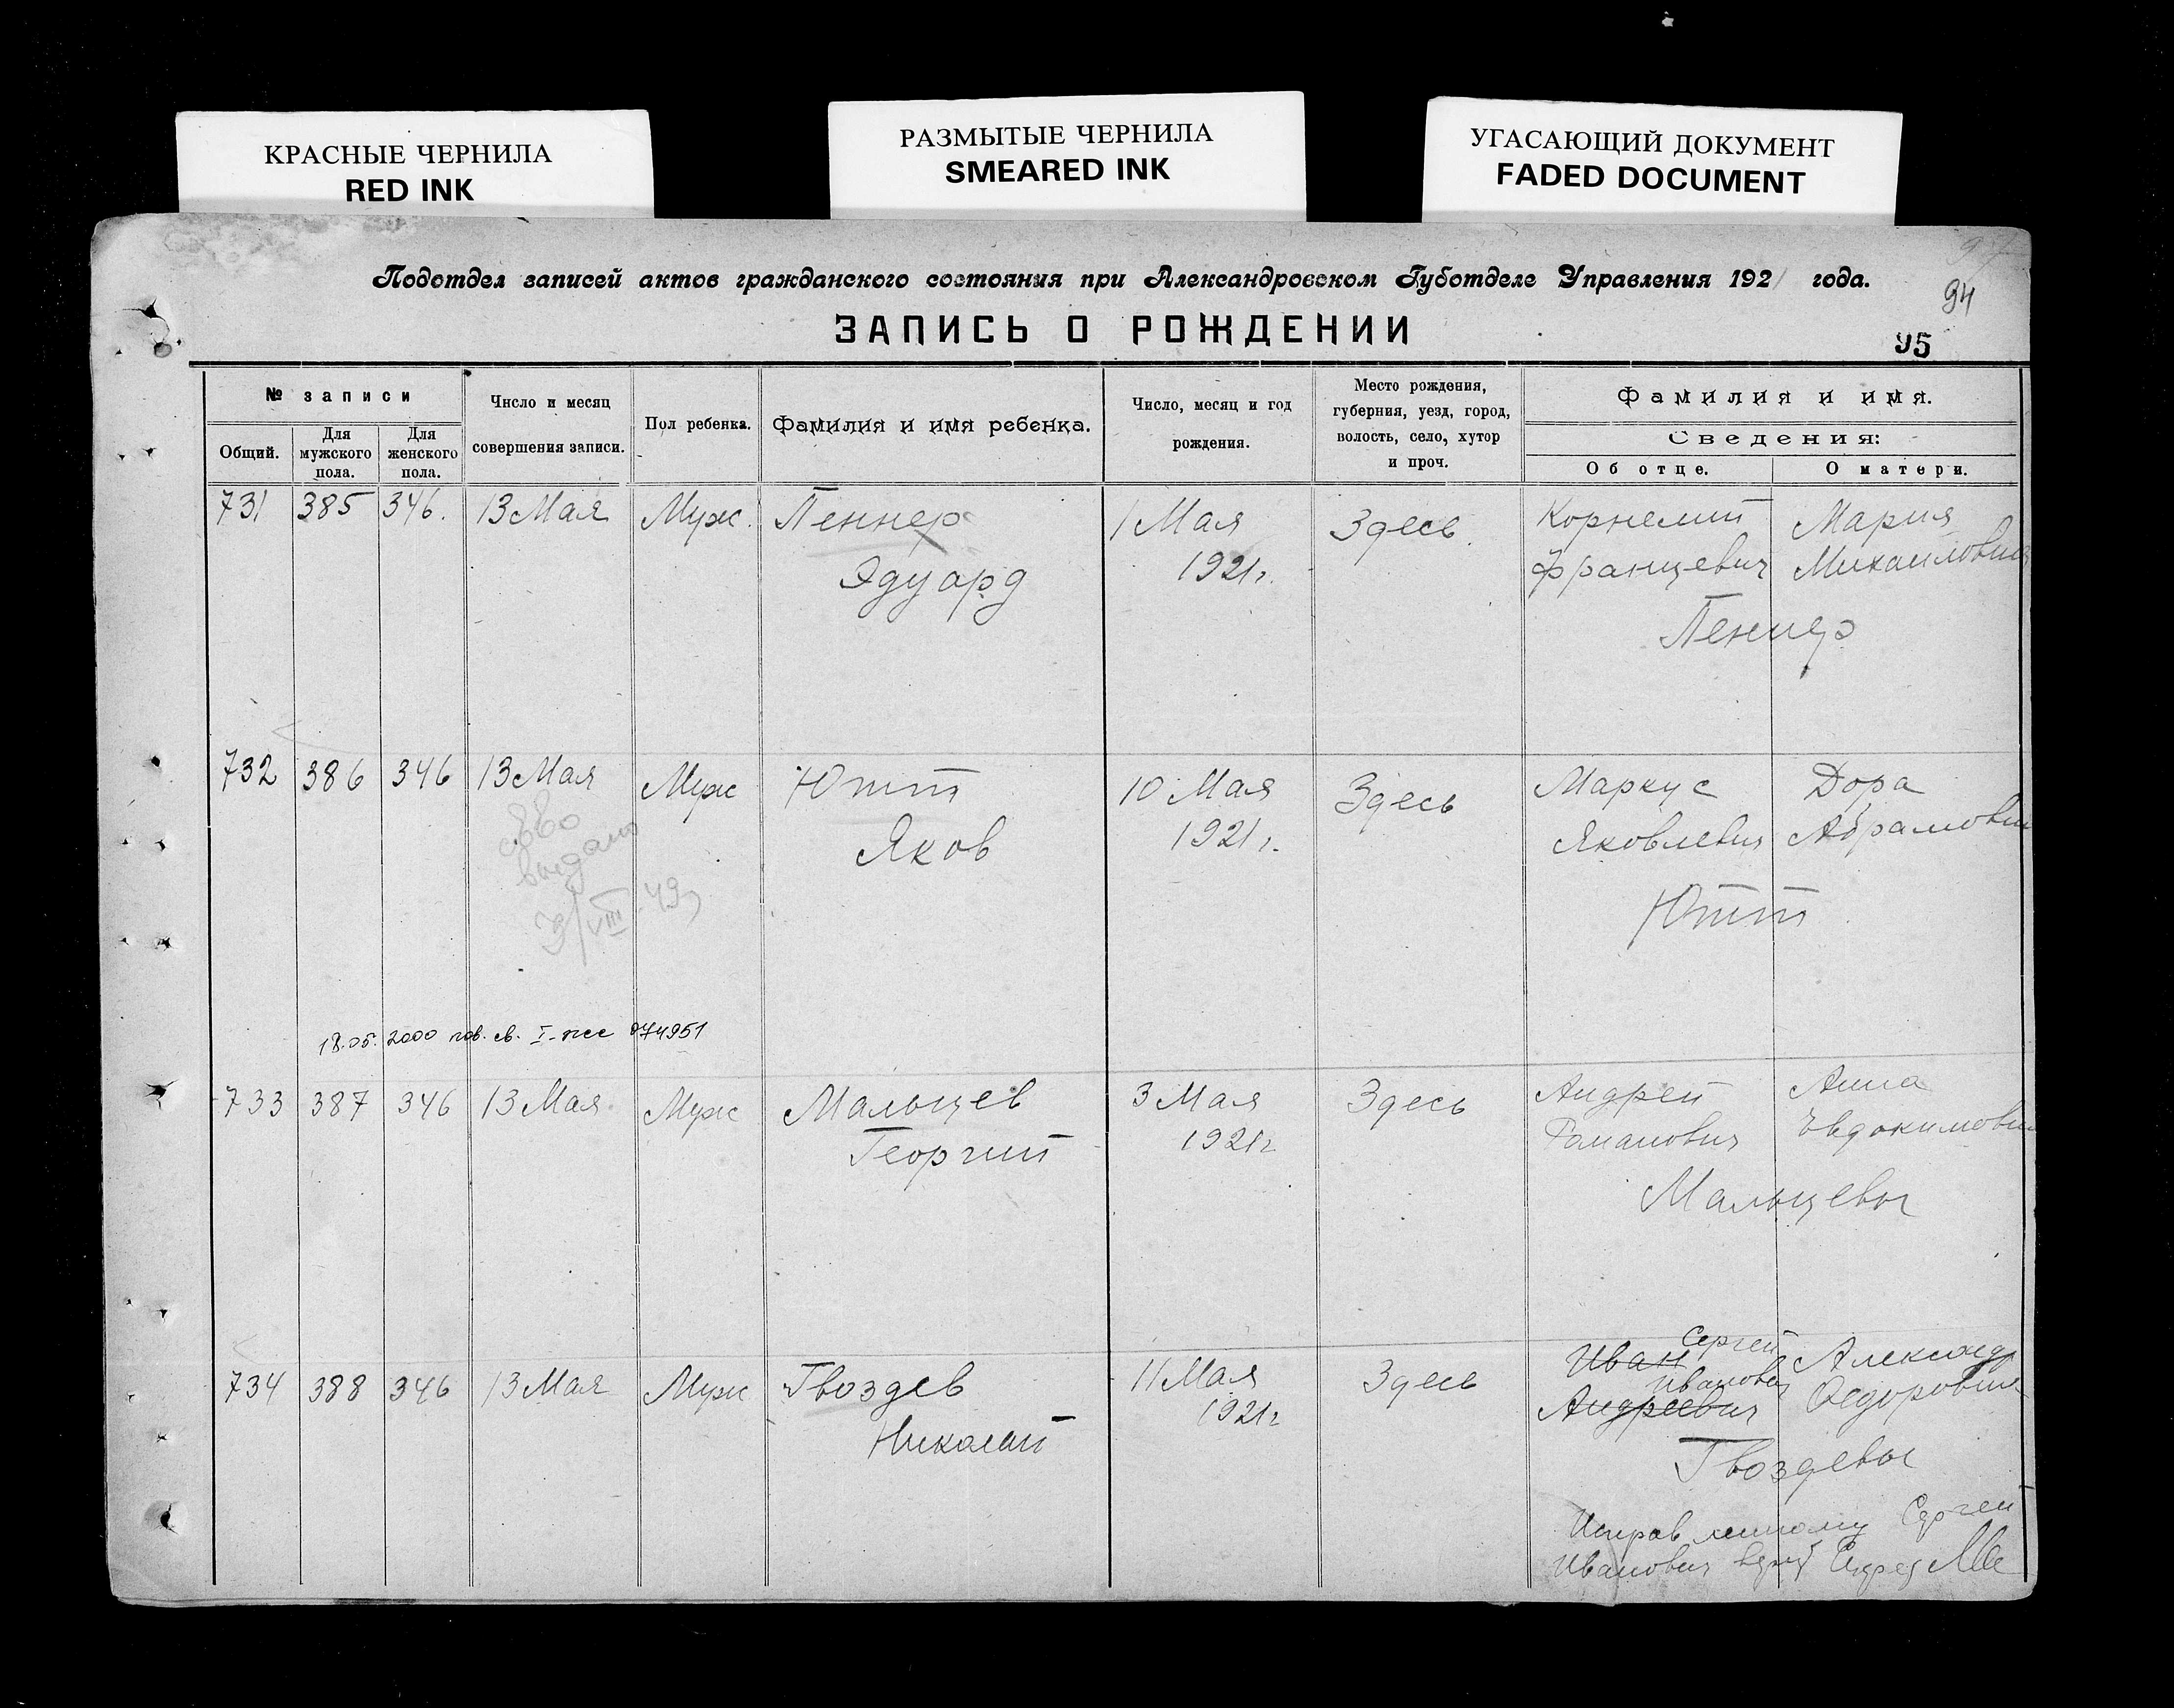 КРАСНЫЕ ЧЕРНИЛА
RED INK
РАЗМЫТЫЕ ЧЕРНИЛА
SMEARED INK
УГАСАЮЩИЙ ДОКУМЕНТ
FADED DOCUMENT
Подотдел записей актов гражданского состояния при Александровском Губотделе Управления 1921 года.
94
ЗАПИСЬ О РОЖДЕНИИ
95
№ записи
Общий.
Для мужского пола.
Для женского пола.
Число и месяц совершения записи.
Пол ребенка.
Фамилия и имя ребенка.
Число, месяц и год рождения.
Место рождения, губерния, уезд, город, волость, село, хутор и проч.
Фамилия и имя.
Сведения:
Об отце.
О матери.
731 385 346. 13 Мая Муж. Пеннер 1 Мая Здесь. Корнелий Мария
Эдуард 1921 г. Францевич Михаиловна
Пеннер
732 386 346 13 Мая Муж Ютт 10 Мая Здесь Маркус Дора
Яков 1921 г. Яковлевич Абрамовна
выдано
Ютт
18.05.2000 пов. св. I-жс 074951
733 387 346 13 Мая Муж Мальцев 3 Мая Здесь Андрей Анна
Георгий 1921 г Романович Евдокимовна
Мальцевы
734 388 346 13 Мая Муж Гвоздев 11 Мая Здесь Иван Сергей Александр
Николай 1921 г Андреевич Иванович Федоровна
Гвоздевы
Исправленному Сергей
Иванович верить